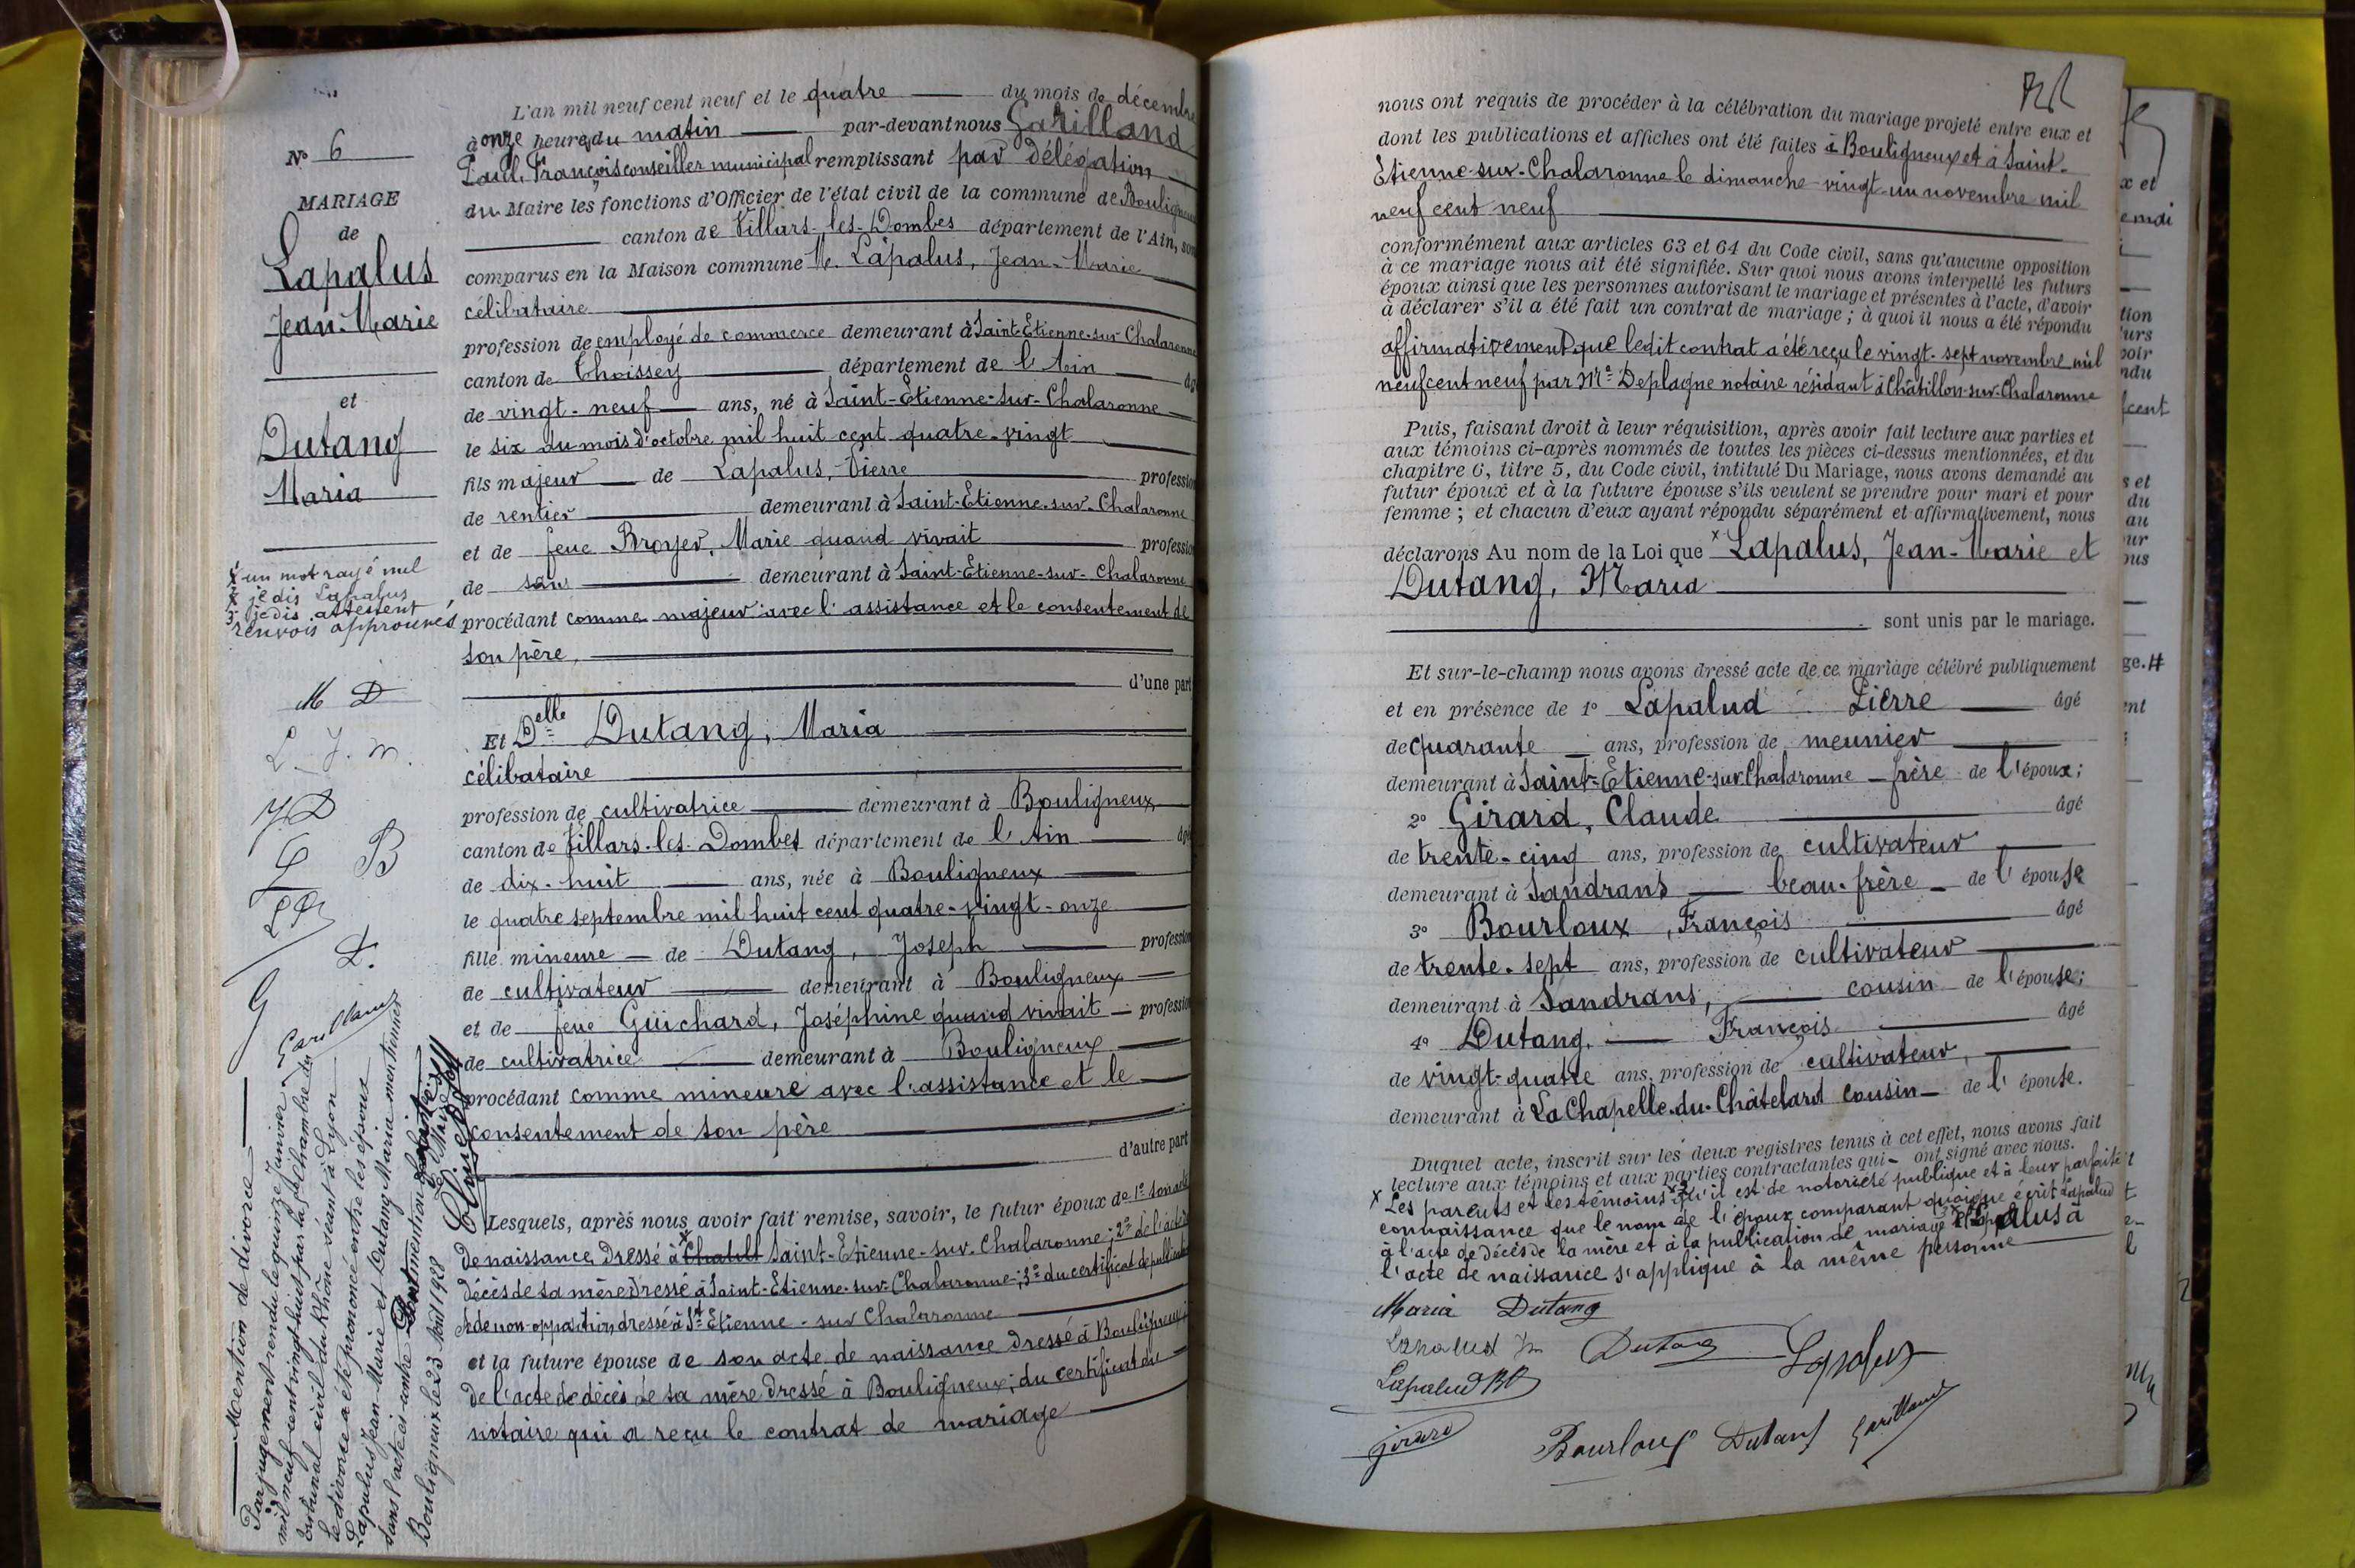 N° 6
MARIAGE
de
Lapalus
Jean-Marie
et
Dutang
Maria
x un mot rayé nul
x je dis Lapalus
3 je dis attestent
renvois approuvés
M D
L. J. m.
JD
B
D.
G
Garilland
Mention de divorce
Par jugement rendu le quinze Janvier
mil neuf cent vingt huit par la Chambre du
tribunal civil du Rhône séant à Lyon
le divorce a été prononcé entre les époux
Lapalus Jean-Marie et Dutang Maria mentionnés
dans l'acte ci-contre Dont mention
Bouligneux le 23 Août 1928
Le Maire
L'an mil neuf cent neuf et le quatre du mois de décembre
à onze heures du matin par-devant nous Garilland
Paul, François conseiller municipal remplissant par délégation
du Maire les fonctions d'Officier de l'état civil de la commune de Bouligneux
canton de Villars-les-Dombes département de l'Ain, sont
comparus en la Maison commune M. Lapalus, Jean-Marie
célibataire
profession de employé de commerce demeurant à Saint-Etienne-sur-Chalaronne
canton de Thoissey département de l'Ain âgé
de vingt-neuf ans, né à Saint-Etienne-sur-Chalaronne
le six du mois d'octobre mil huit cent quatre-vingt
fils majeur de Lapalus, Pierre profession
de rentier demeurant à Saint-Etienne-sur-Chalaronne
et de feue Broyer, Marie quand vivait profession
de sans demeurant à Saint-Etienne-sur-Chalaronne
procédant comme majeur avec l'assistance et le consentement de
son père,
d'une part
Et Delle Dutang, Maria
célibataire
profession de cultivatrice demeurant à Bouligneux
canton de Villars-les-Dombes département de l'Ain âgée
de dix-huit ans, née à Bouligneux
le quatre septembre mil huit cent quatre-vingt-onze
fille mineure de Dutang, Joseph profession
de cultivateur demeurant à Bouligneux
et de feue Guichard, Joséphine quand vivait profession
de cultivatrice demeurant à Bouligneux
procédant comme mineure avec l'assistance et le
consentement de son père
d'autre part
Lesquels, après nous avoir fait remise, savoir, le futur époux de 1° son acte
de naissance dressé à x Chatill Saint-Etienne-sur-Chalaronne; 2° de l'acte de
décès de sa mère dressé à Saint-Etienne-sur-Chalaronne; 3° du certificat de publication
et de non-opposition dressé à St Etienne-sur Chalaronne
et la future épouse de son acte de naissance dressé à Bouligneux;
de l'acte de décès de sa mère dressé à Bouligneux; du certificat du
notaire qui a reçu le contrat de mariage
nous ont requis de procéder à la célébration du mariage projeté entre eux et
dont les publications et affiches ont été faites à Bouligneux et à Saint-
Etienne-sur-Chalaronne le dimanche vingt-un novembre mil
neuf cent neuf
conformément aux articles 63 et 64 du Code civil, sans qu'aucune opposition
à ce mariage nous ait été signifiée. Sur quoi nous avons interpellé les futurs
époux ainsi que les personnes autorisant le mariage et présentes à l'acte, d'avoir
à déclarer s'il a été fait un contrat de mariage; à quoi il nous a été répondu
affirmativement que ledit contrat a été reçu le vingt-sept novembre mil
neuf cent neuf par Me Deplagne notaire résidant à Châtillon-sur-Chalaronne
Puis, faisant droit à leur réquisition, après avoir fait lecture aux parties et
aux témoins ci-après nommés de toutes les pièces ci-dessus mentionnées, et du
chapitre 6, titre 5, du Code civil, intitulé Du Mariage, nous avons demandé au
futur époux et à la future épouse s'ils veulent se prendre pour mari et pour
femme; et chacun d'eux ayant répondu séparément et affirmativement, nous
déclarons Au nom de la Loi que x Lapalus, Jean-Marie et
Dutang, Maria
sont unis par le mariage.
Et sur-le-champ nous avons dressé acte de ce mariage célébré publiquement
et en présence de 1° Lapalud Pierre âgé
de quarante ans, profession de meunier
demeurant à Saint-Etienne-sur-Chalaronne frère de l'époux;
2° Girard, Claude âgé
de trente-cinq ans, profession de cultivateur
demeurant à Sandrans beau-frère de l'épouse
3° Bourloux, François âgé
de trente-sept ans, profession de cultivateur
demeurant à Sandrans, cousin de l'épouse;
4° Dutang, François âgé
de vingt-quatre ans, profession de cultivateur,
demeurant à La Chapelle-du-Châtelard cousin de l'épouse.
Duquel acte, inscrit sur les deux registres tenus à cet effet, nous avons fait
lecture aux témoins et aux parties contractantes qui ont signé avec nous.
x Les parents et les témoins x3 qu'il est de notoriété publique et à leur parfaite
connaissance que le nom de l'époux comparant quoique écrit Lapalud
à l'acte de décès de la mère et à la publication de mariage et Lapalus à
l'acte de naissance s'applique à la même personne
Maria Dutang
Lapalud Dutang Lapalus
Lapalud
Girard
Bourloux Dutang Garilland